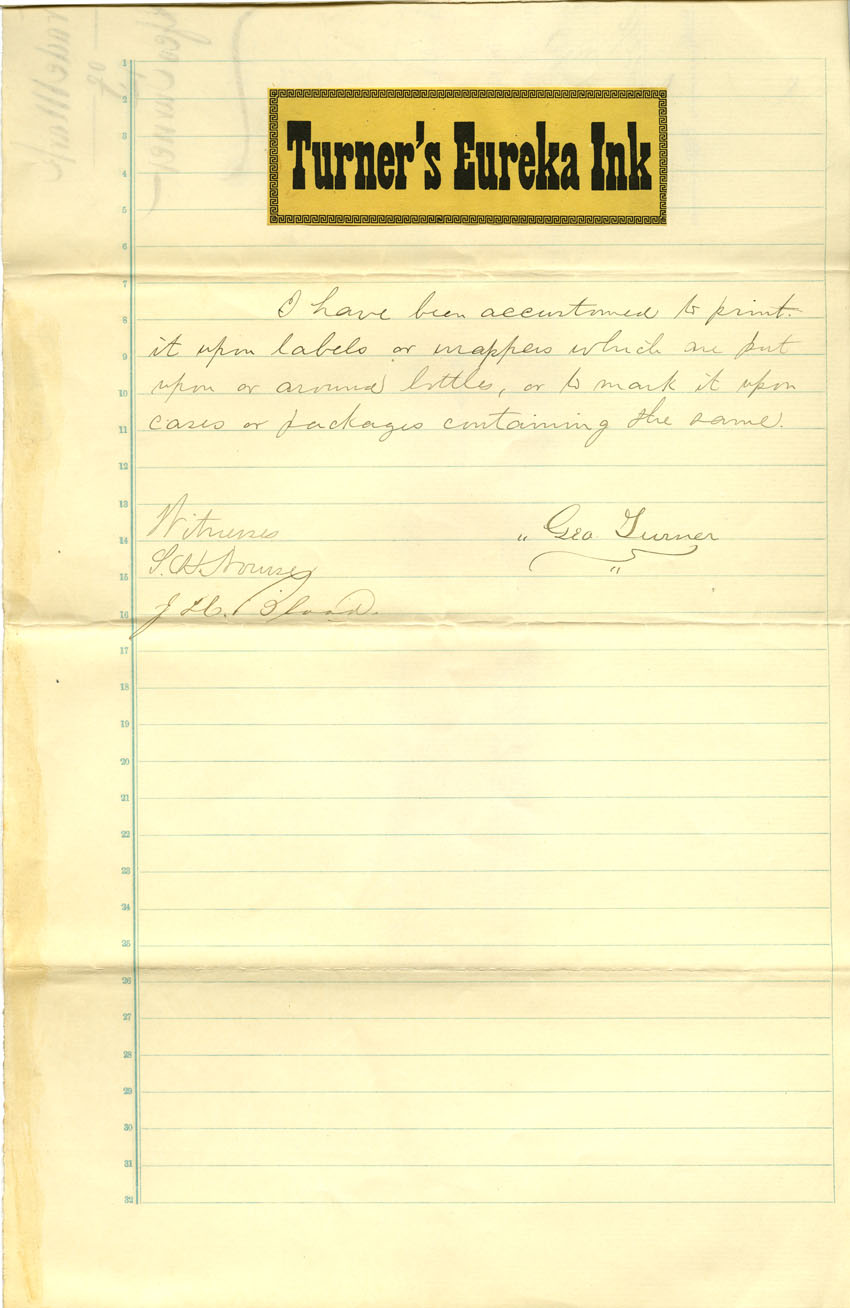 Turner's Eureka Ink
I have been accustomed to print
it upon labels or wrappers which are put
upon or around bottles, or to mark it upon
cases or packages containing the same.
Witnesses
" Geo. Turner "
S. H. Nourse
J. H. Blood.
1
2
3
4
5
6
7
8
9
10
11
12
13
14
15
16
17
18
19
20
21
22
23
24
25
26
27
28
29
30
31
32